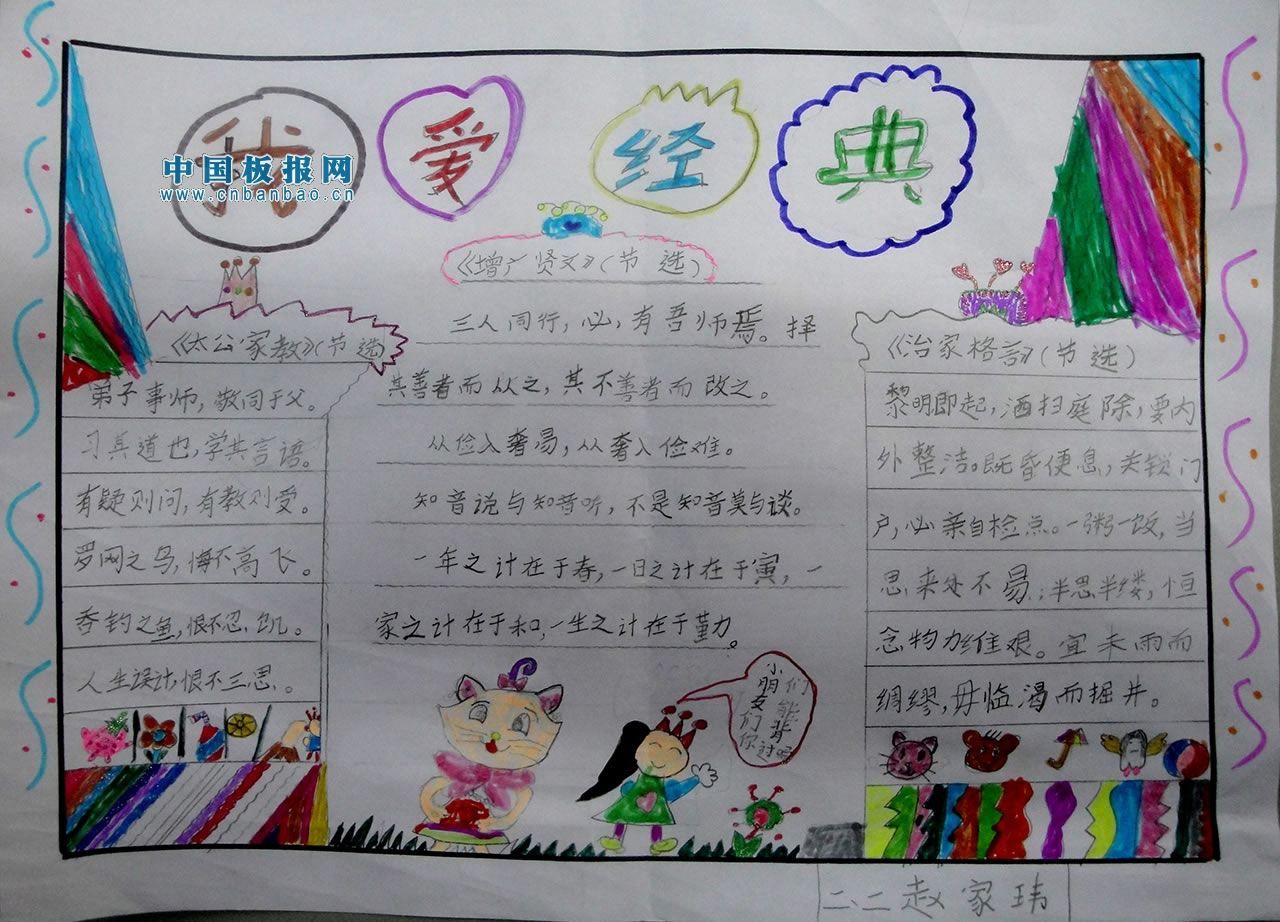 我爱经典
中国板报网
www.cnbanbao.cn
《增广贤文》(节选)
三人同行，必，有吾师焉。择
其善者而从之，其不善者而改之。
从俭入奢易，从奢入俭难。
知音说与知音听，不是知音莫与谈。
一年之计在于春，一日之计在于寅，一
家之计在于和，一生之计在于勤。
《太公家教》(节选)
弟子事师，敬同于父。
习其道也，学其言语。
有疑则问，有教则受。
罗网之鸟，悔不高飞。
吞钓之鱼，恨不忍饥。
人生误计，恨不三思。
《治家格言》(节选)
黎明即起，洒扫庭除，要内
外整洁。既昏便息，关锁门
户，必亲自检点。一粥一饭，当
思来处不易；半思半缕，恒
念物力维艰。宜未雨而
绸缪，毋临渴而掘井。
小朋友们你
们能背过吗
二、二赵家玮